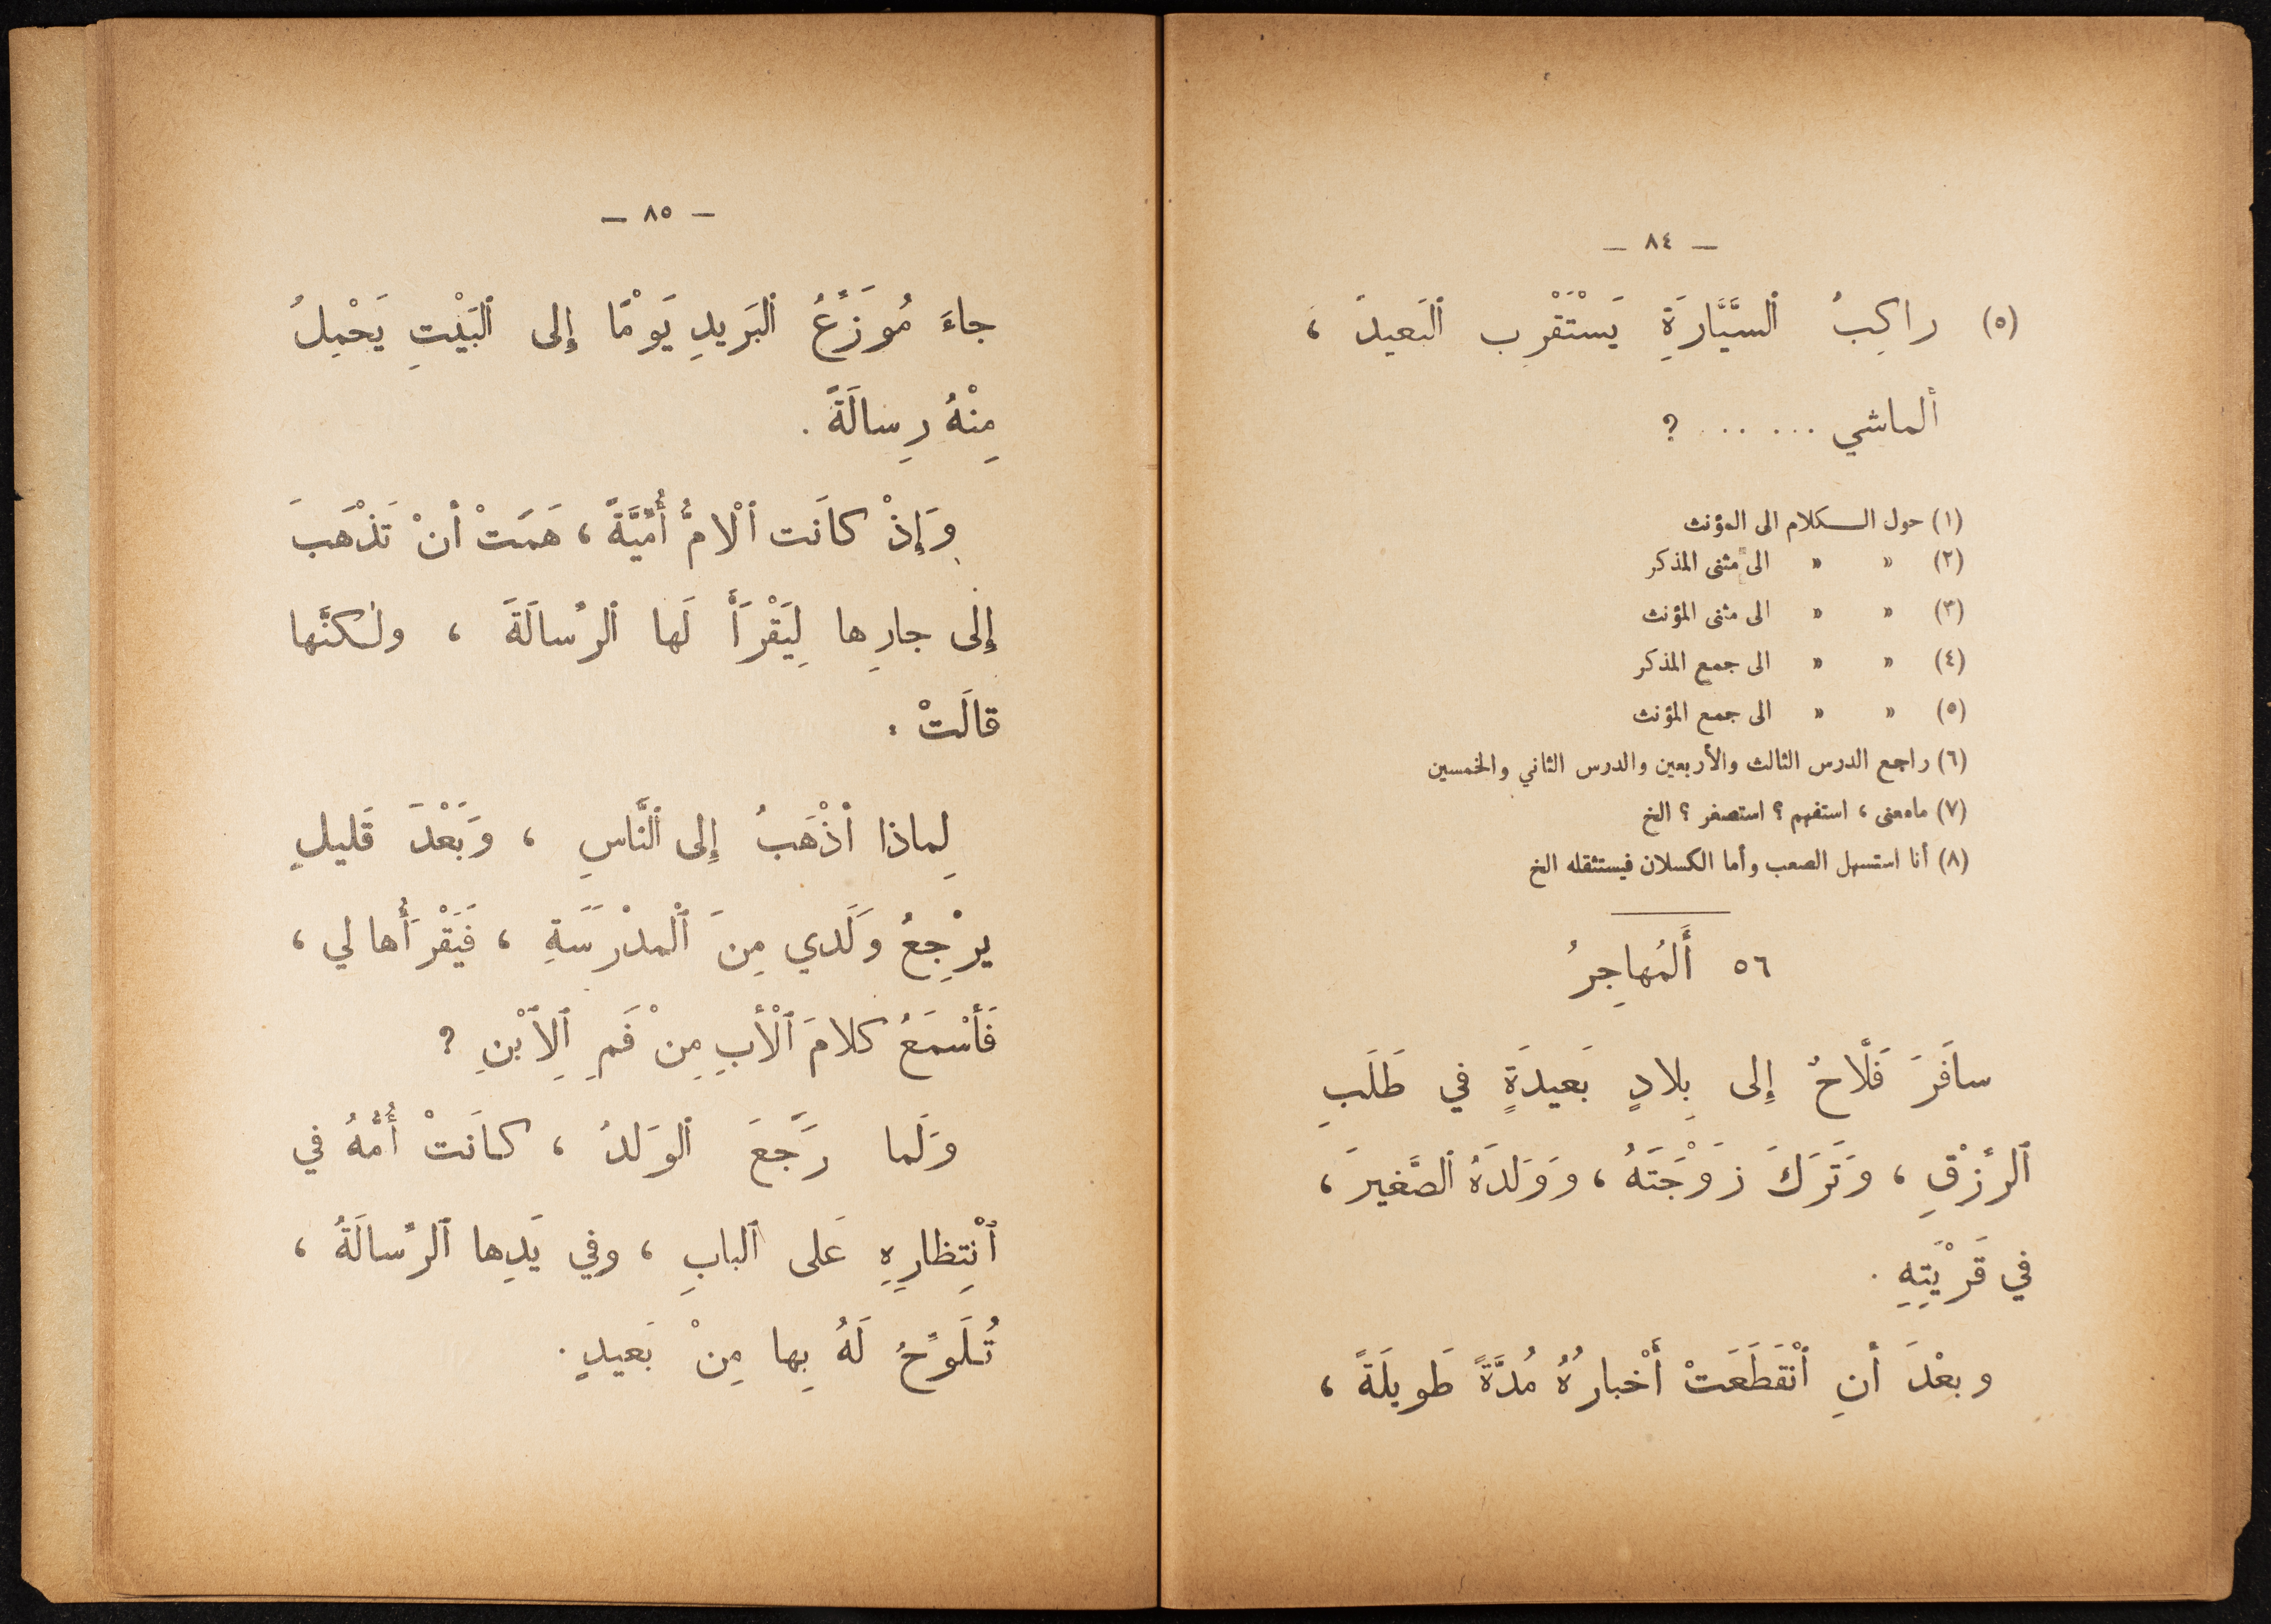 — ٨٤ —
(٥) راكِبُ ٱلسَّيَّارَةِ يَسْتَقْرِب ٱلبَعيدَ ،
ألماشي ... ... ?
(١) حول الكلام الى المؤنث
(٢) » » الى مثنى المذكر
(٣) » » الى مثنى المؤنث
(٤) » » الى جمع المذكر
(٥) » » الى جمع المؤنث
(٦) راجع الدرس الثالث والأربعين والدرس الثاني والخمسين
(٧) مامعنى ، استفهم ؟ استصغر ؟ الخ
(٨) أنا استسهل الصعب وأما الكسلان فيستثقله الخ
٥٦ أَلمُهاجِرُ
سافَرَ فَلَّاحٌ إِلى بِلادٍ بَعيدَةٍ في طَلَبِ
ٱلرِّزْقِ ، وَتَرَكَ زَوْجَتَهُ ، وَوَلَدَهُ ٱلصَّغيرَ ،
في قَرْيَتِهِ .
وبعْدَ أنِ ٱنْقَطَعَتْ أَخْبارُهُ مُدَّةً طَويلَةً ،
— ٨٥ —
جاءَ مُوَزِّعُ ٱلبَريدِ يَوْمًا إِلى ٱلبَيْتِ يَحْمِلُ
مِنْهُ رِسالَةً .
وَإِذْ كانَت ٱلْامُّ أُمِّيَّةً ، هَمَتْ أنْ تَذْهَبَ
إِلَى جارِها لِيَقْرَأَ لَها ٱلرِّسالَةَ ، ولٰكنَّها
قالَتْ :
لِماذا أذْهَبُ إِلى ٱلنَّاسِ ، وَبَعْدَ قَليلٍ
يرْجِعُ وَلَدي مِنَ ٱلْمدْرَسَةِ ، فَيَقْرَأُها لي ،
فَأسْمَعُ كلامَ ٱلْأبِ مِنْ فَمِ ٱلِٱبْنِ ?
وَلَما رَجَعَ ٱلوَلدُ ، كانَتْ أُمُّهُ في
ٱنْتِظارِهِ عَلى ٱلبابِ ، وفي يَدِها ٱلرِّسالَةُ ،
تُلَوِّحُ لَهُ بِها مِنْ بَعيدٍ .